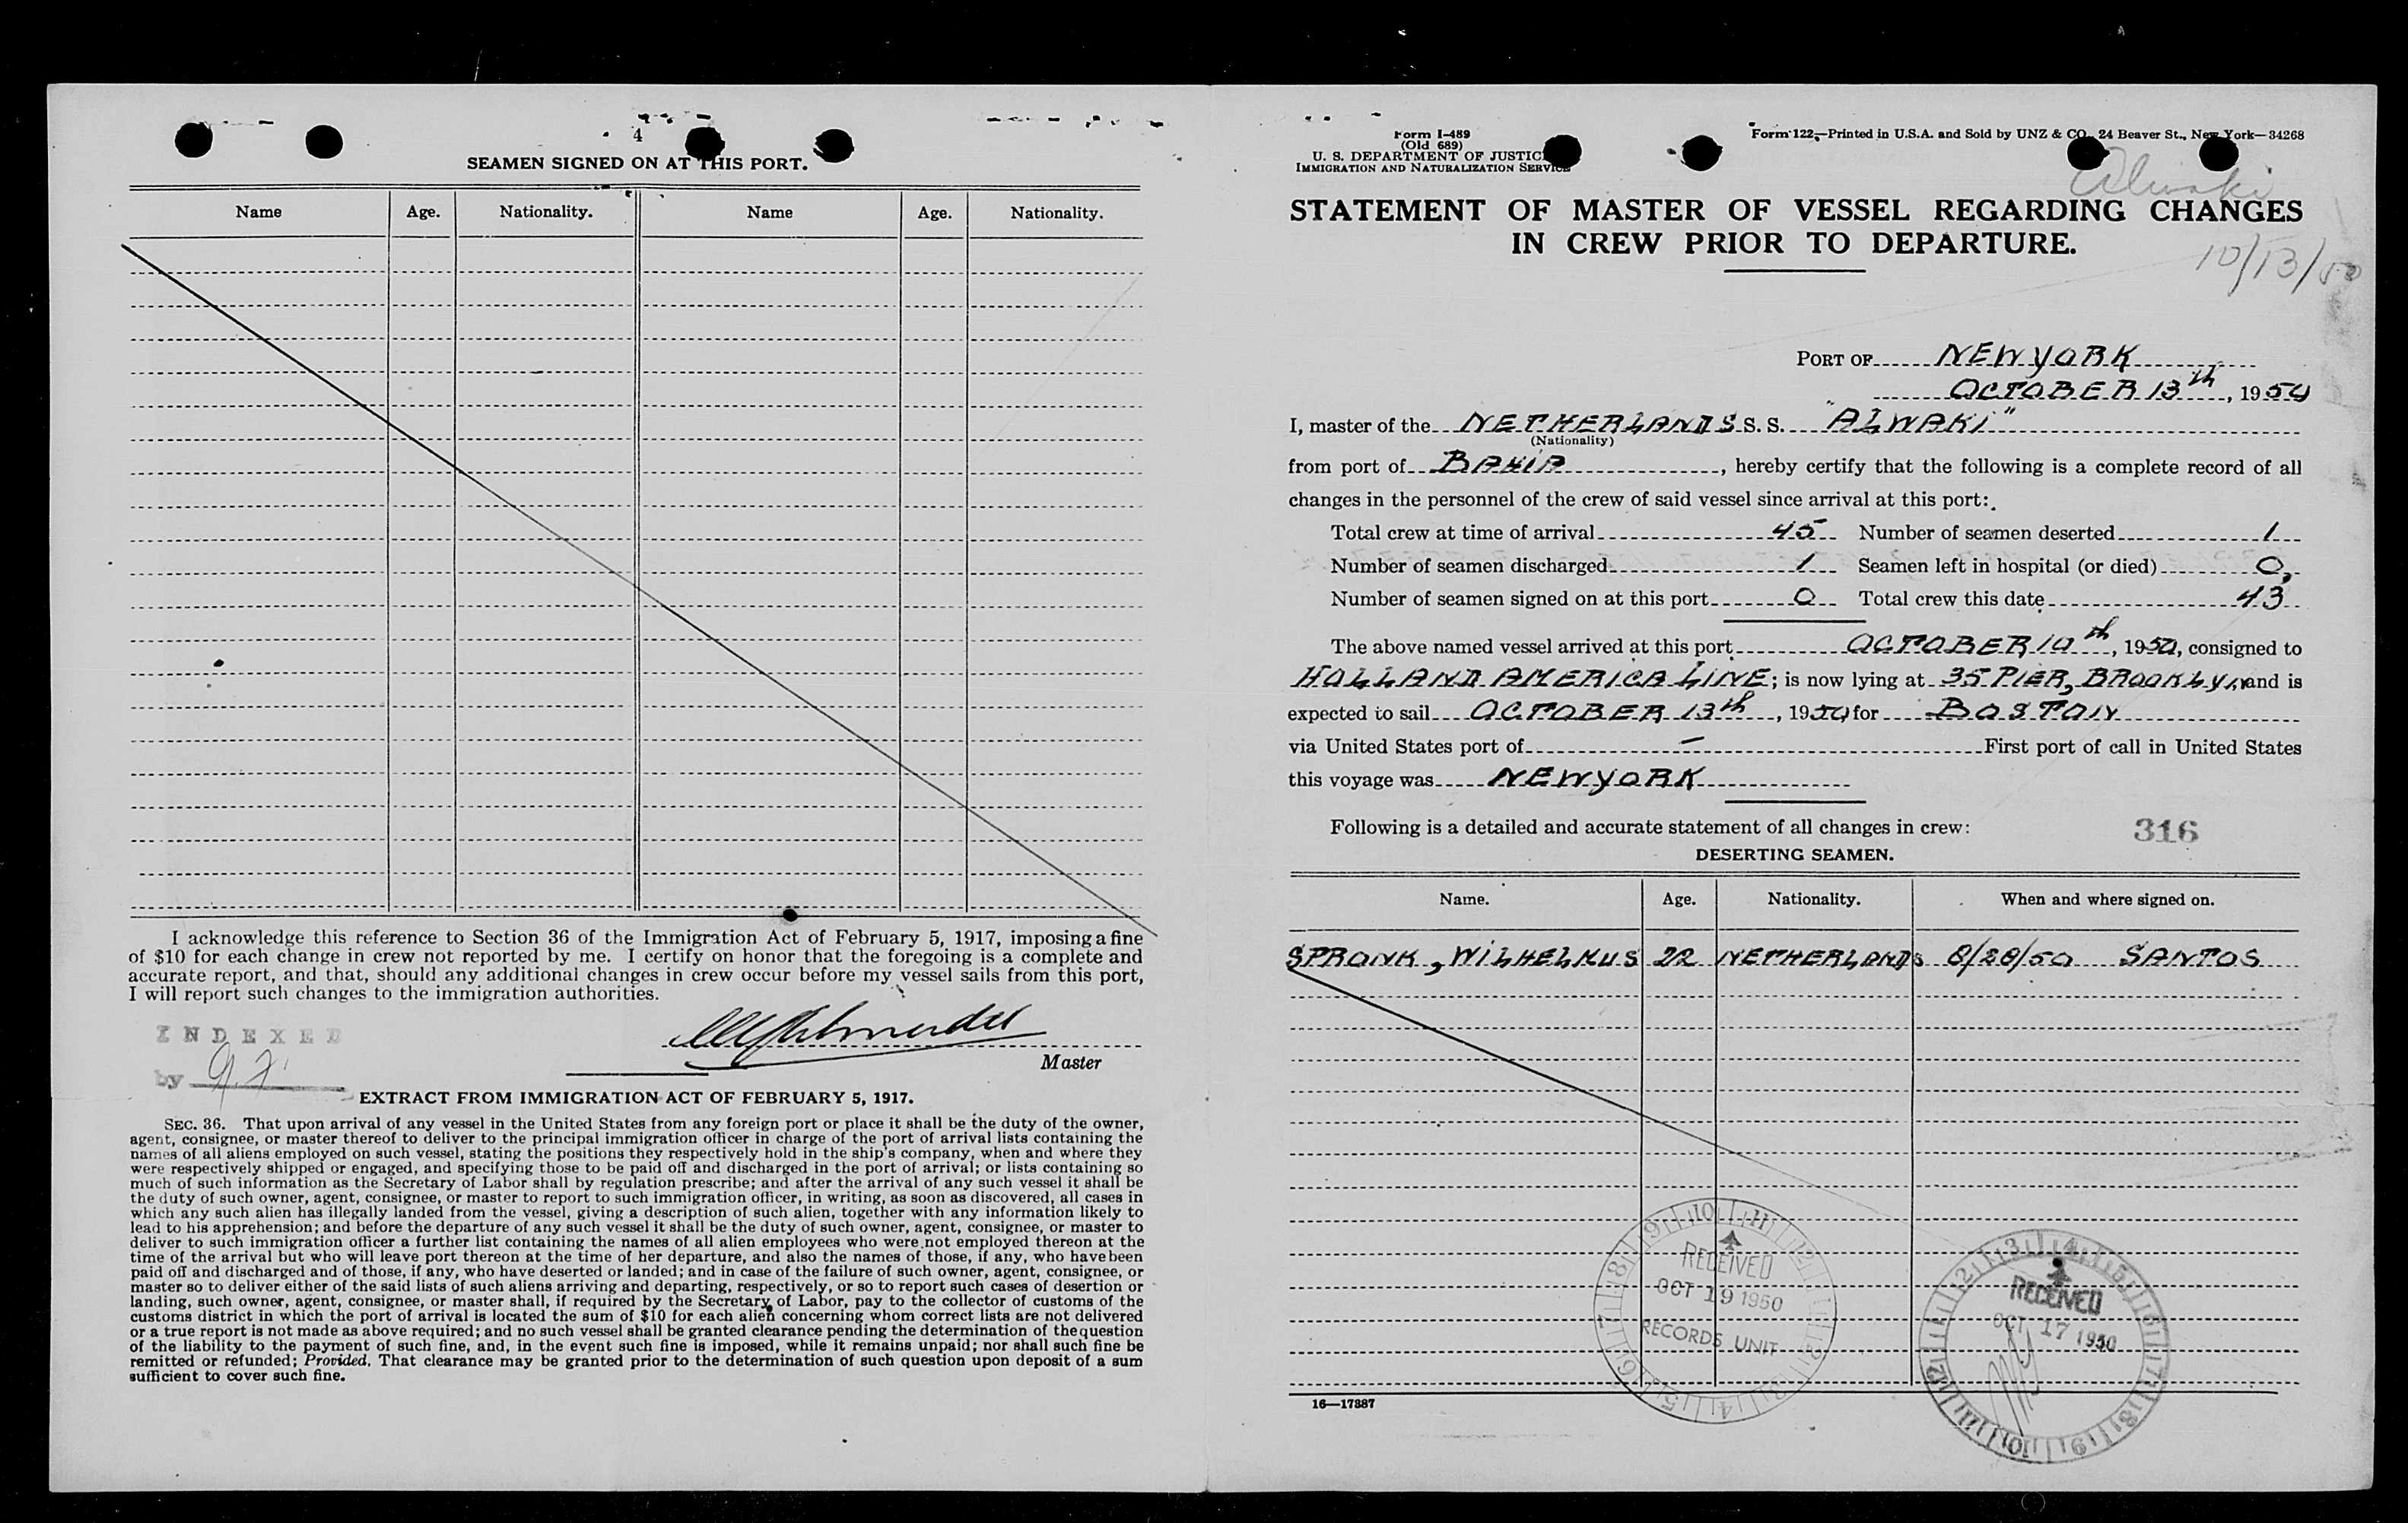 4
SEAMEN SIGNED ON AT THIS PORT.
Name Age. Nationality. Name Age. Nationality.
I acknowledge this reference to Section 36 of the Immigration Act of February 5, 1917, imposing a fine
of $10 for each change in crew not reported by me. I certify on honor that the foregoing is a complete and
accurate report, and that, should any additional changes in crew occur before my vessel sails from this port,
I will report such changes to the immigration authorities.
INDEXED
by
Master
EXTRACT FROM IMMIGRATION ACT OF FEBRUARY 5, 1917.
SEC. 36. That upon arrival of any vessel in the United States from any foreign port or place it shall be the duty of the owner,
agent, consignee, or master thereof to deliver to the principal immigration officer in charge of the port of arrival lists containing the
names of all aliens employed on such vessel, stating the positions they respectively hold in the ship's company, when and where they
were respectively shipped or engaged, and specifying those to be paid off and discharged in the port of arrival; or lists containing so
much of such information as the Secretary of Labor shall by regulation prescribe; and after the arrival of any such vessel it shall be
the duty of such owner, agent, consignee, or master to report to such immigration officer, in writing, as soon as discovered, all cases in
which any such alien has illegally landed from the vessel, giving a description of such alien, together with any information likely to
lead to his apprehension; and before the departure of any such vessel it shall be the duty of such owner, agent, consignee, or master to
deliver to such immigration officer a further list containing the names of all alien employees who were not employed thereon at the
time of the arrival but who will leave port thereon at the time of her departure, and also the names of those, if any, who have been
paid off and discharged and of those, if any, who have deserted or landed; and in case of the failure of such owner, agent, consignee, or
master so to deliver either of the said lists of such aliens arriving and departing, respectively, or so to report such cases of desertion or
landing, such owner, agent, consignee, or master shall, if required by the Secretary of Labor, pay to the collector of customs of the
customs district in which the port of arrival is located the sum of $10 for each alien concerning whom correct lists are not delivered
or a true report is not made as above required; and no such vessel shall be granted clearance pending the determination of the question
of the liability to the payment of such fine, and, in the event such fine is imposed, while it remains unpaid; nor shall such fine be
remitted or refunded; Provided, That clearance may be granted prior to the determination of such question upon deposit of a sum
sufficient to cover such fine.
Form I-489
(Old 689)
U. S. DEPARTMENT OF JUSTICE
IMMIGRATION AND NATURALIZATION SERVICE
Form 122—Printed in U.S.A. and Sold by UNZ & CO., 24 Beaver St., New York—34268
Alwaki
STATEMENT OF MASTER OF VESSEL REGARDING CHANGES
IN CREW PRIOR TO DEPARTURE.
10/13/50
PORT OF NEW YORK
OCTOBER 13th, 1950
I, master of the NETHERLANDS S. S. "ALWAKI"
(Nationality)
from port of BAHIA, hereby certify that the following is a complete record of all
changes in the personnel of the crew of said vessel since arrival at this port:
Total crew at time of arrival 45 Number of seamen deserted 1
Number of seamen discharged 1 Seamen left in hospital (or died) 0
Number of seamen signed on at this port 0 Total crew this date 43
The above named vessel arrived at this port OCTOBER 10th, 1950, consigned to
HOLLAND AMERICA LINE; is now lying at 35 PIER, BROOKLYN and is
expected to sail OCTOBER 13th, 1950 for BOSTON
via United States port of — First port of call in United States
this voyage was NEW YORK
Following is a detailed and accurate statement of all changes in crew:
316
DESERTING SEAMEN.
Name. Age. Nationality. When and where signed on.
SPRONK, WILHELMUS 22 NETHERLANDS 8/28/50 SANTOS
RECEIVED
OCT 19 1950
RECORDS UNIT
RECEIVED
OCT 17 1950
16—17387